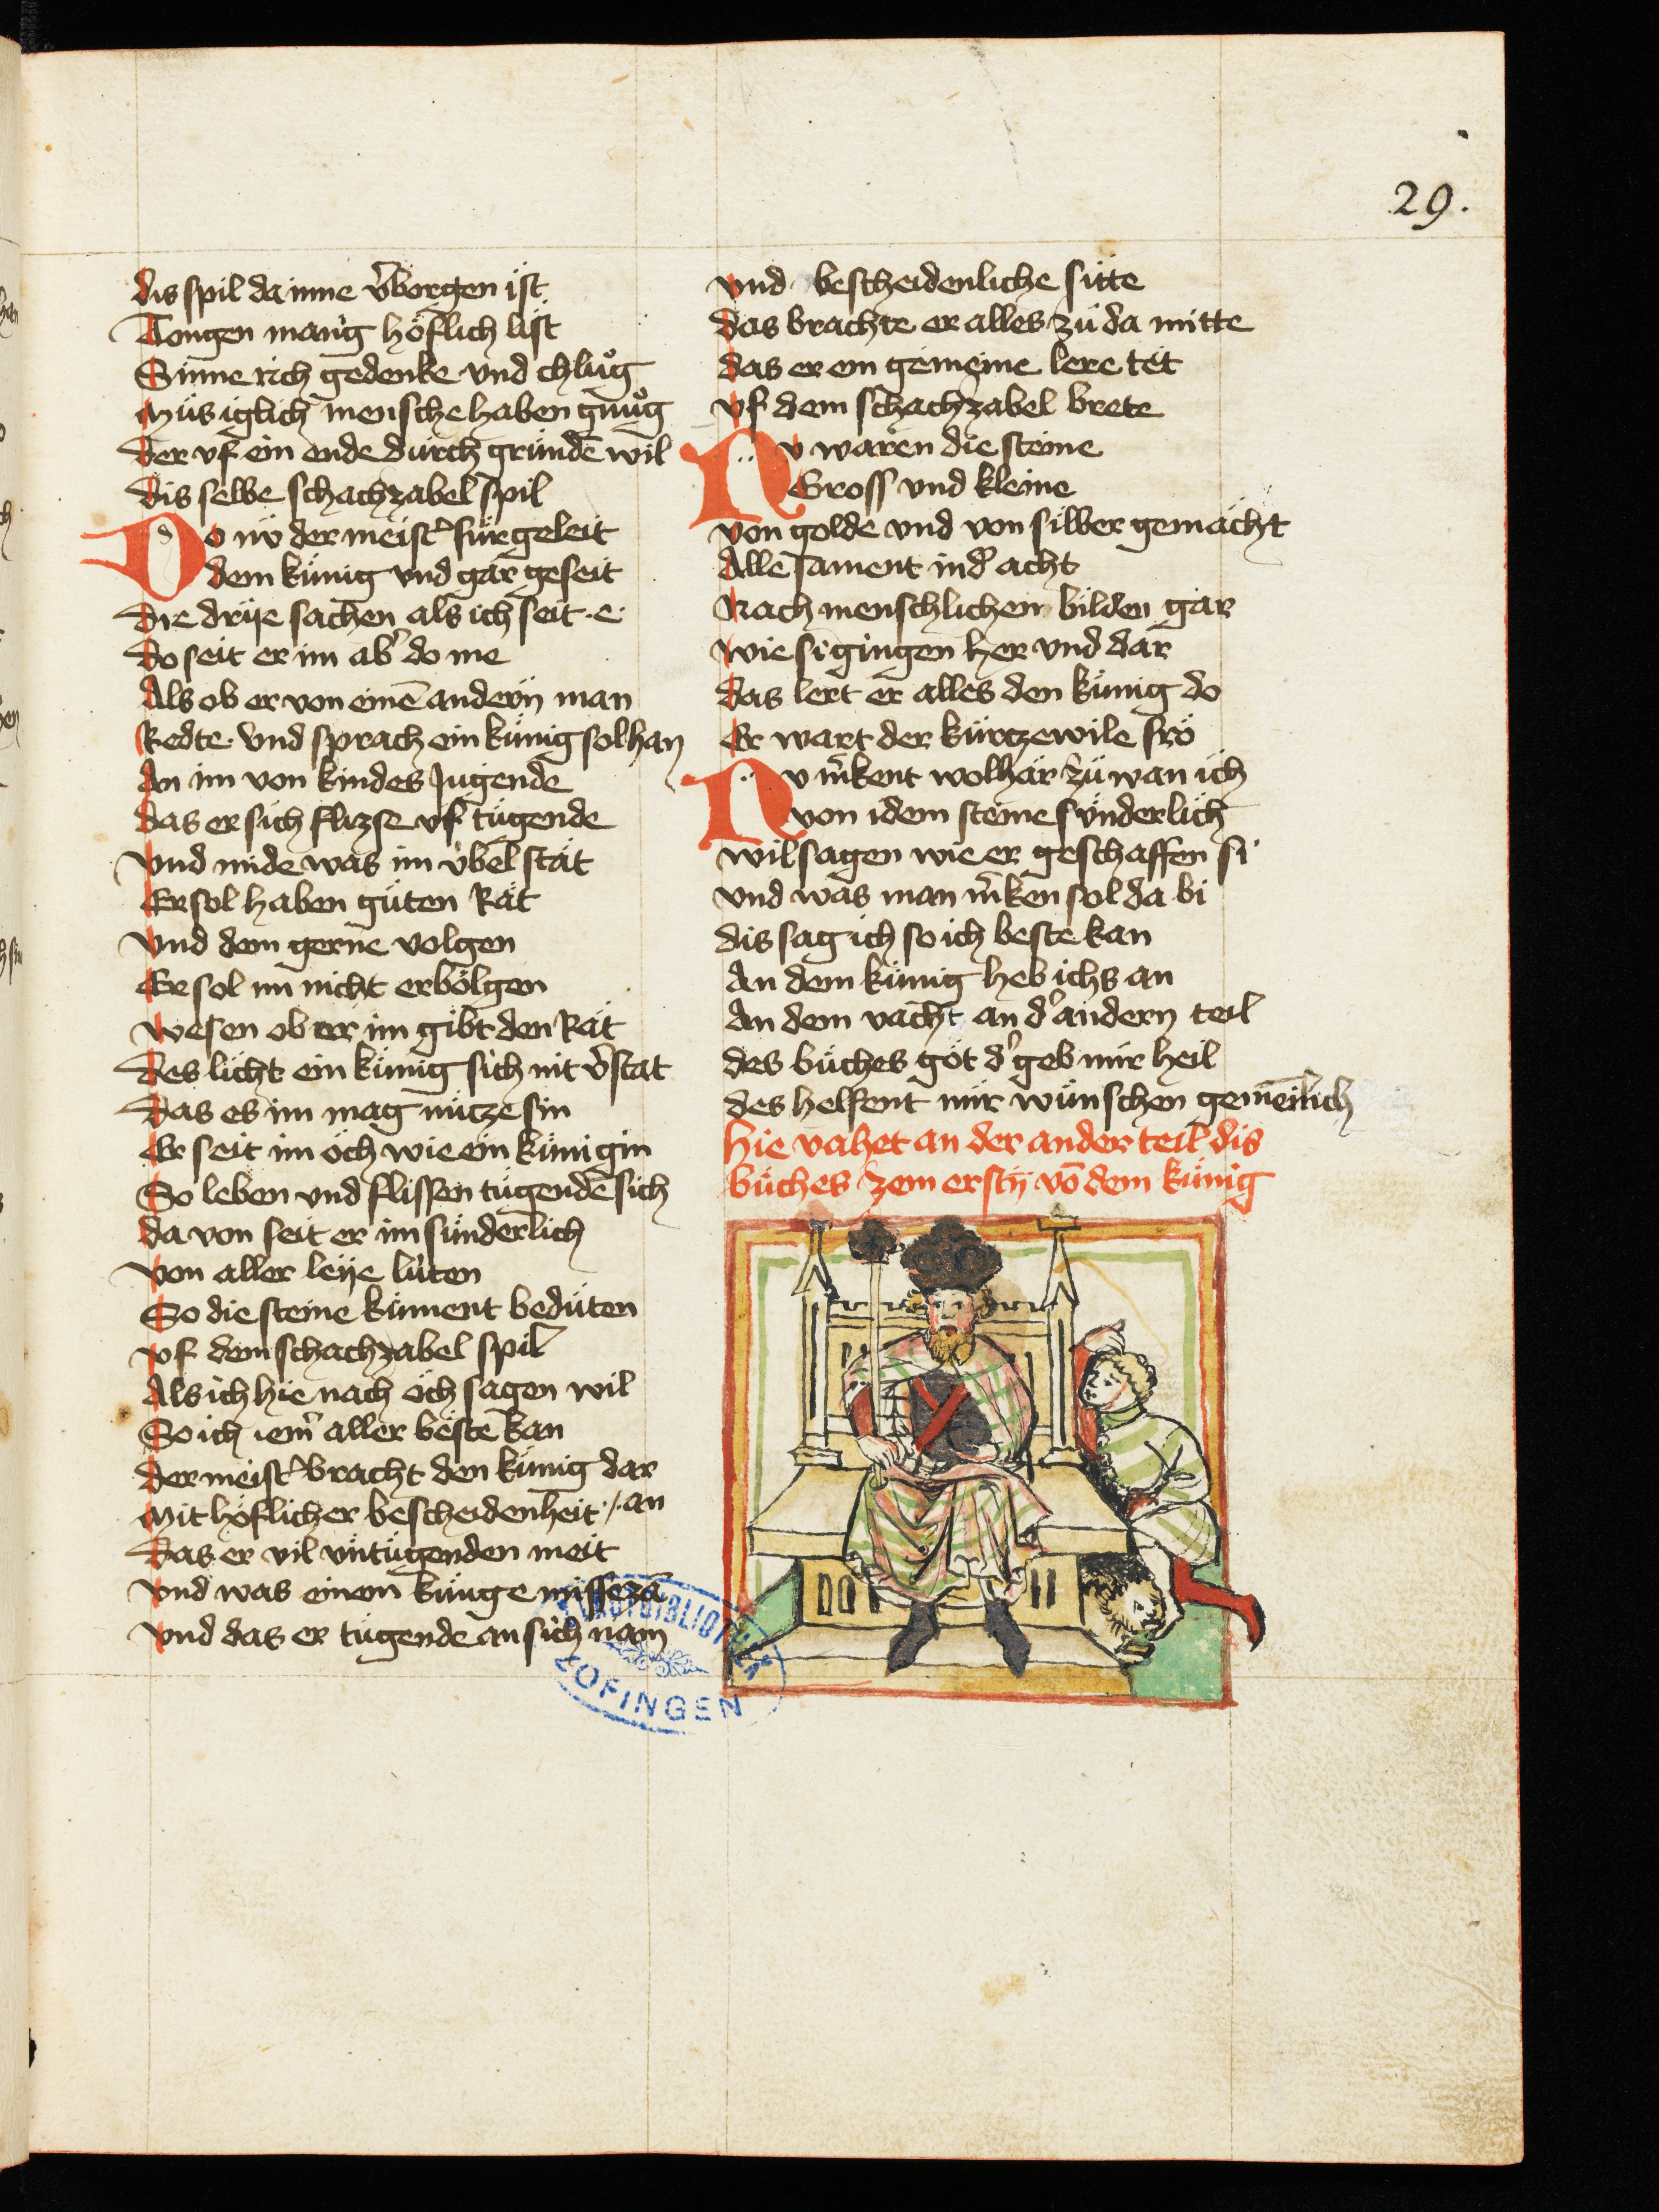 29.
dis spil da inne v̾borgen ist
Tougen mang höflich list
Sinne rich gedenke vnd chluͦg
Mus iglich mensche haben gnuͦg
Der vf ein ende durch grundē wil
dis selbe schachzabel spil
Do nv der meist̾ fürgeleit
dem künig vnd gar geseit
Die drije sachen als ich seit ·e·
Do seit er im ab̾ do me
Als ob er von einē andern man
Redte vnd sprach ein künig sol han
An im von kindes Jugende
Das er sich flizse vf tugende
Vnd mide was im v̈bel stat
Er sol haben güten Rat
Vnd dem gerne volgen
Er sol im nicht erbolgen
Wesen ob er im gibt den Rat
Des licht ein künig sich nit v̾stat
Das es im mag nutze sin
Er seit im öch wie ein künigin
So leben vnd flissen tugendē sich
Da von seit er im sunderlich
Von aller leije lüten
So die steine künnent bedüten
Vf dem schachzabel spil
Als ich hie nach öch sagen wil
So ich iem̾ aller beste kan
Der meist̾ bracht den künig dar
Mit höflicher bescheidenheit ·/· an
Das er vil vntugenden meit
Vnd was einem künge missezā
Vnd das er tugende an sich nam
Vnd bescheidenliche sitte
Das brachte er alles zü da mitte
Das er ein gemeine lere tet
Vf dem schachzabel brete
Nv waren die steine
Gross vnd kleine
Von golde vnd von silber gemacht
Alle sament in d̾ acht
Nach menschlichem bilden gar
Wie si gingen her vnd dar
Das lert er alles den künig do
Er wart der kurtzewile fro
Nv m̾kent wol har zü wan ich
von idem steine sunderlich
Wil sagen wie er geschaffen si
Vnd was man m̾ken sol da bi
dis sag ich so ich beste kan
An dem künig heb ichs an
An dem vacht an d̾ andern teil
des büches got d̾ geb mir heil
des helfent mir wünschen gemeilich
hie vahet an der ander teil dis
büches zem ersten vō dem künig
STADTBIBLIOTHEK
ZOFINGEN